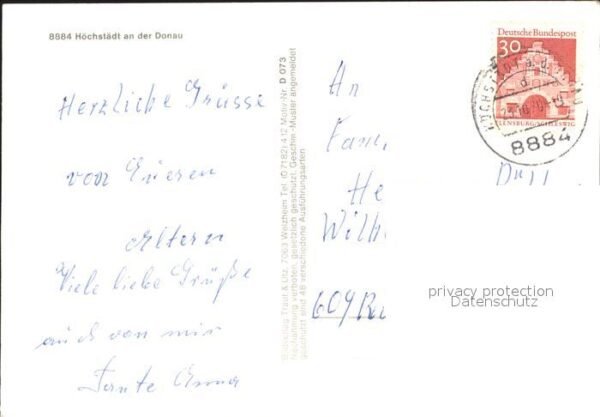 8884 Höchstädt an der Donau
Herzliche Grüsse
von Eueren
Eltern
Viele liebe Grüße
auch von mir
Tante Anna
Bildverlag Traut & Utz, 7063 Welzheim Tel. (07182) 412 Motiv-Nr. D 073
Nachahmung verboten, gesetzlich geschützt, Geschm.-Muster angemeldet
geschützt sind 48 verschiedene Ausführungsarten
Deutsche Bundespost
30
FLENSBURG/SCHLESWIG
8884
An
Fam
He
Wilh
privacy protection
Datenschutz